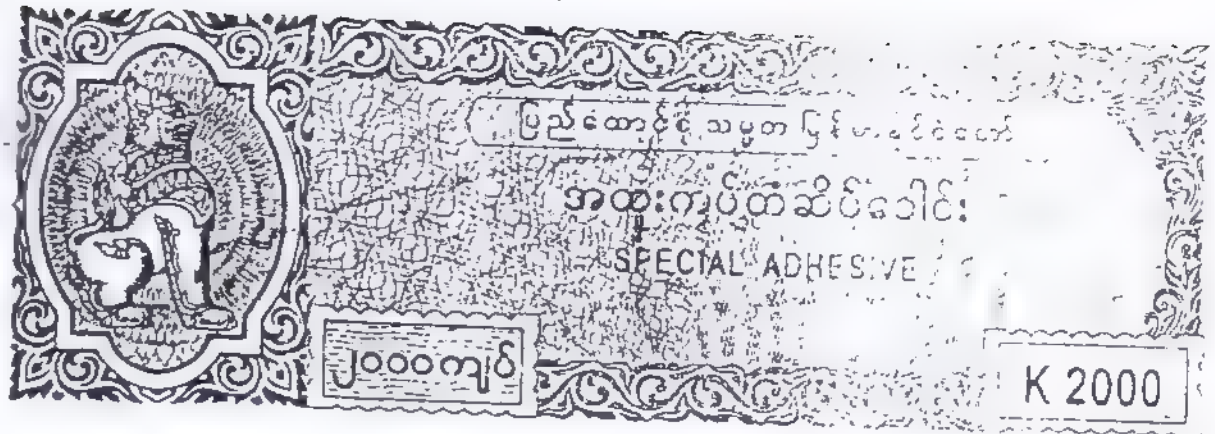 ပြည်ထောင်စု သမ္မတ မြန်မာနိုင်ငံတော်
အထူးကပ်တံဆိပ်ခေါင်း
SPECIAL ADHESIVE
၂၀၀၀ကျပ်
K 2000